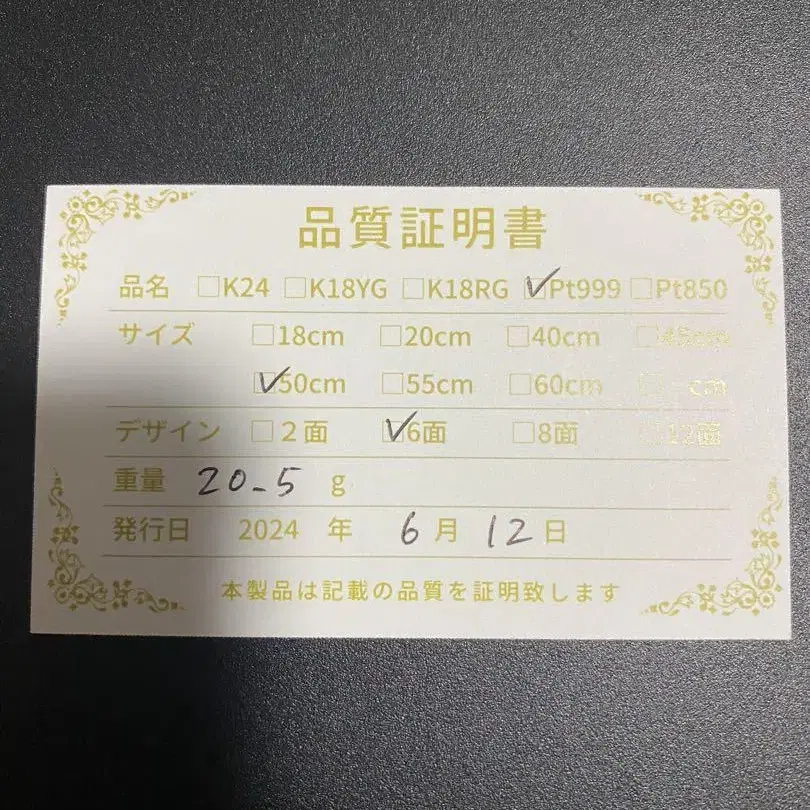 品質証明書
品名 □K24 □K18YG □K18RG ☑Pt999 □Pt850
サイズ □18cm □20cm □40cm □45cm
☑50cm □55cm □60cm □ cm
デザイン □2面 ☑6面 □8面 □12面
重量 20.5 g
発行日 2024 年 6月 12日
本製品は記載の品質を証明致します